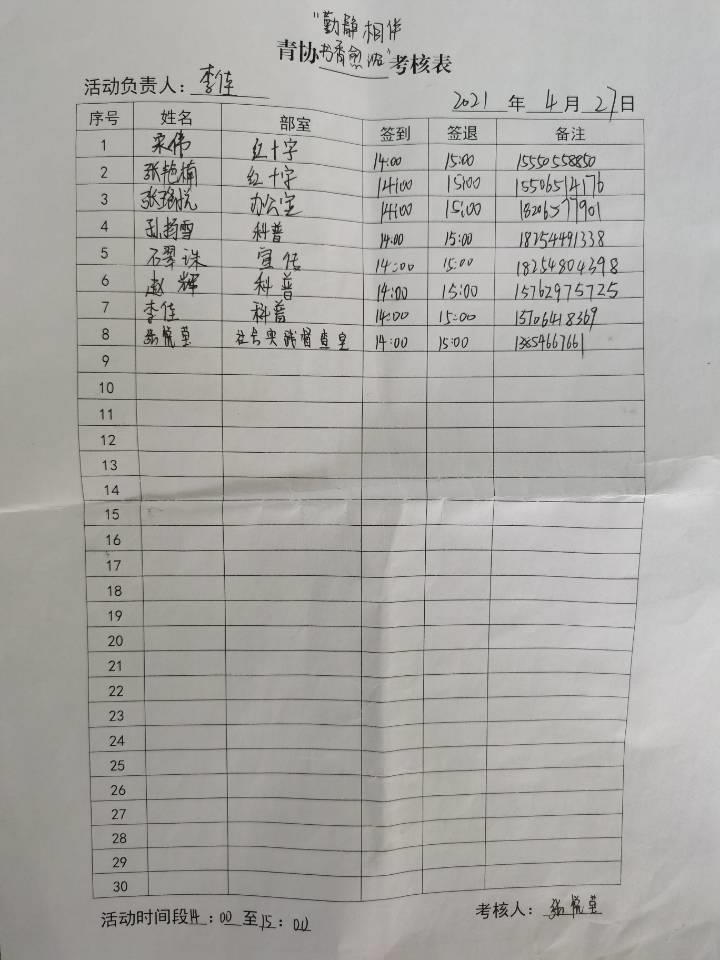 "勤静相伴
青协书香愈浓"考核表
活动负责人：李佳
2021 年 4 月 27 日
序号 姓名 部室 签到 签退 备注
1 宋伟 红十字 14:00 15:00 15550558850
2 张艳楠 红十字 14:00 15:00 15506514176
3 张珞悦 办公室 14:00 15:00 18206577901
4 孙扬雪 科普 14:00 15:00 18254491338
5 石翠珠 宣传 14:00 15:00 18254804398
6 赵辉 科普 14:00 15:00 15762975725
7 李佳 科普 14:00 15:00 15706418369
8 张悦莹 社会实践督查室 14:00 15:00 13854667661
9
10
11
12
13
14
15
16
17
18
19
20
21
22
23
24
25
26
27
28
29
30
活动时间段14：00至15：00
考核人：张悦莹